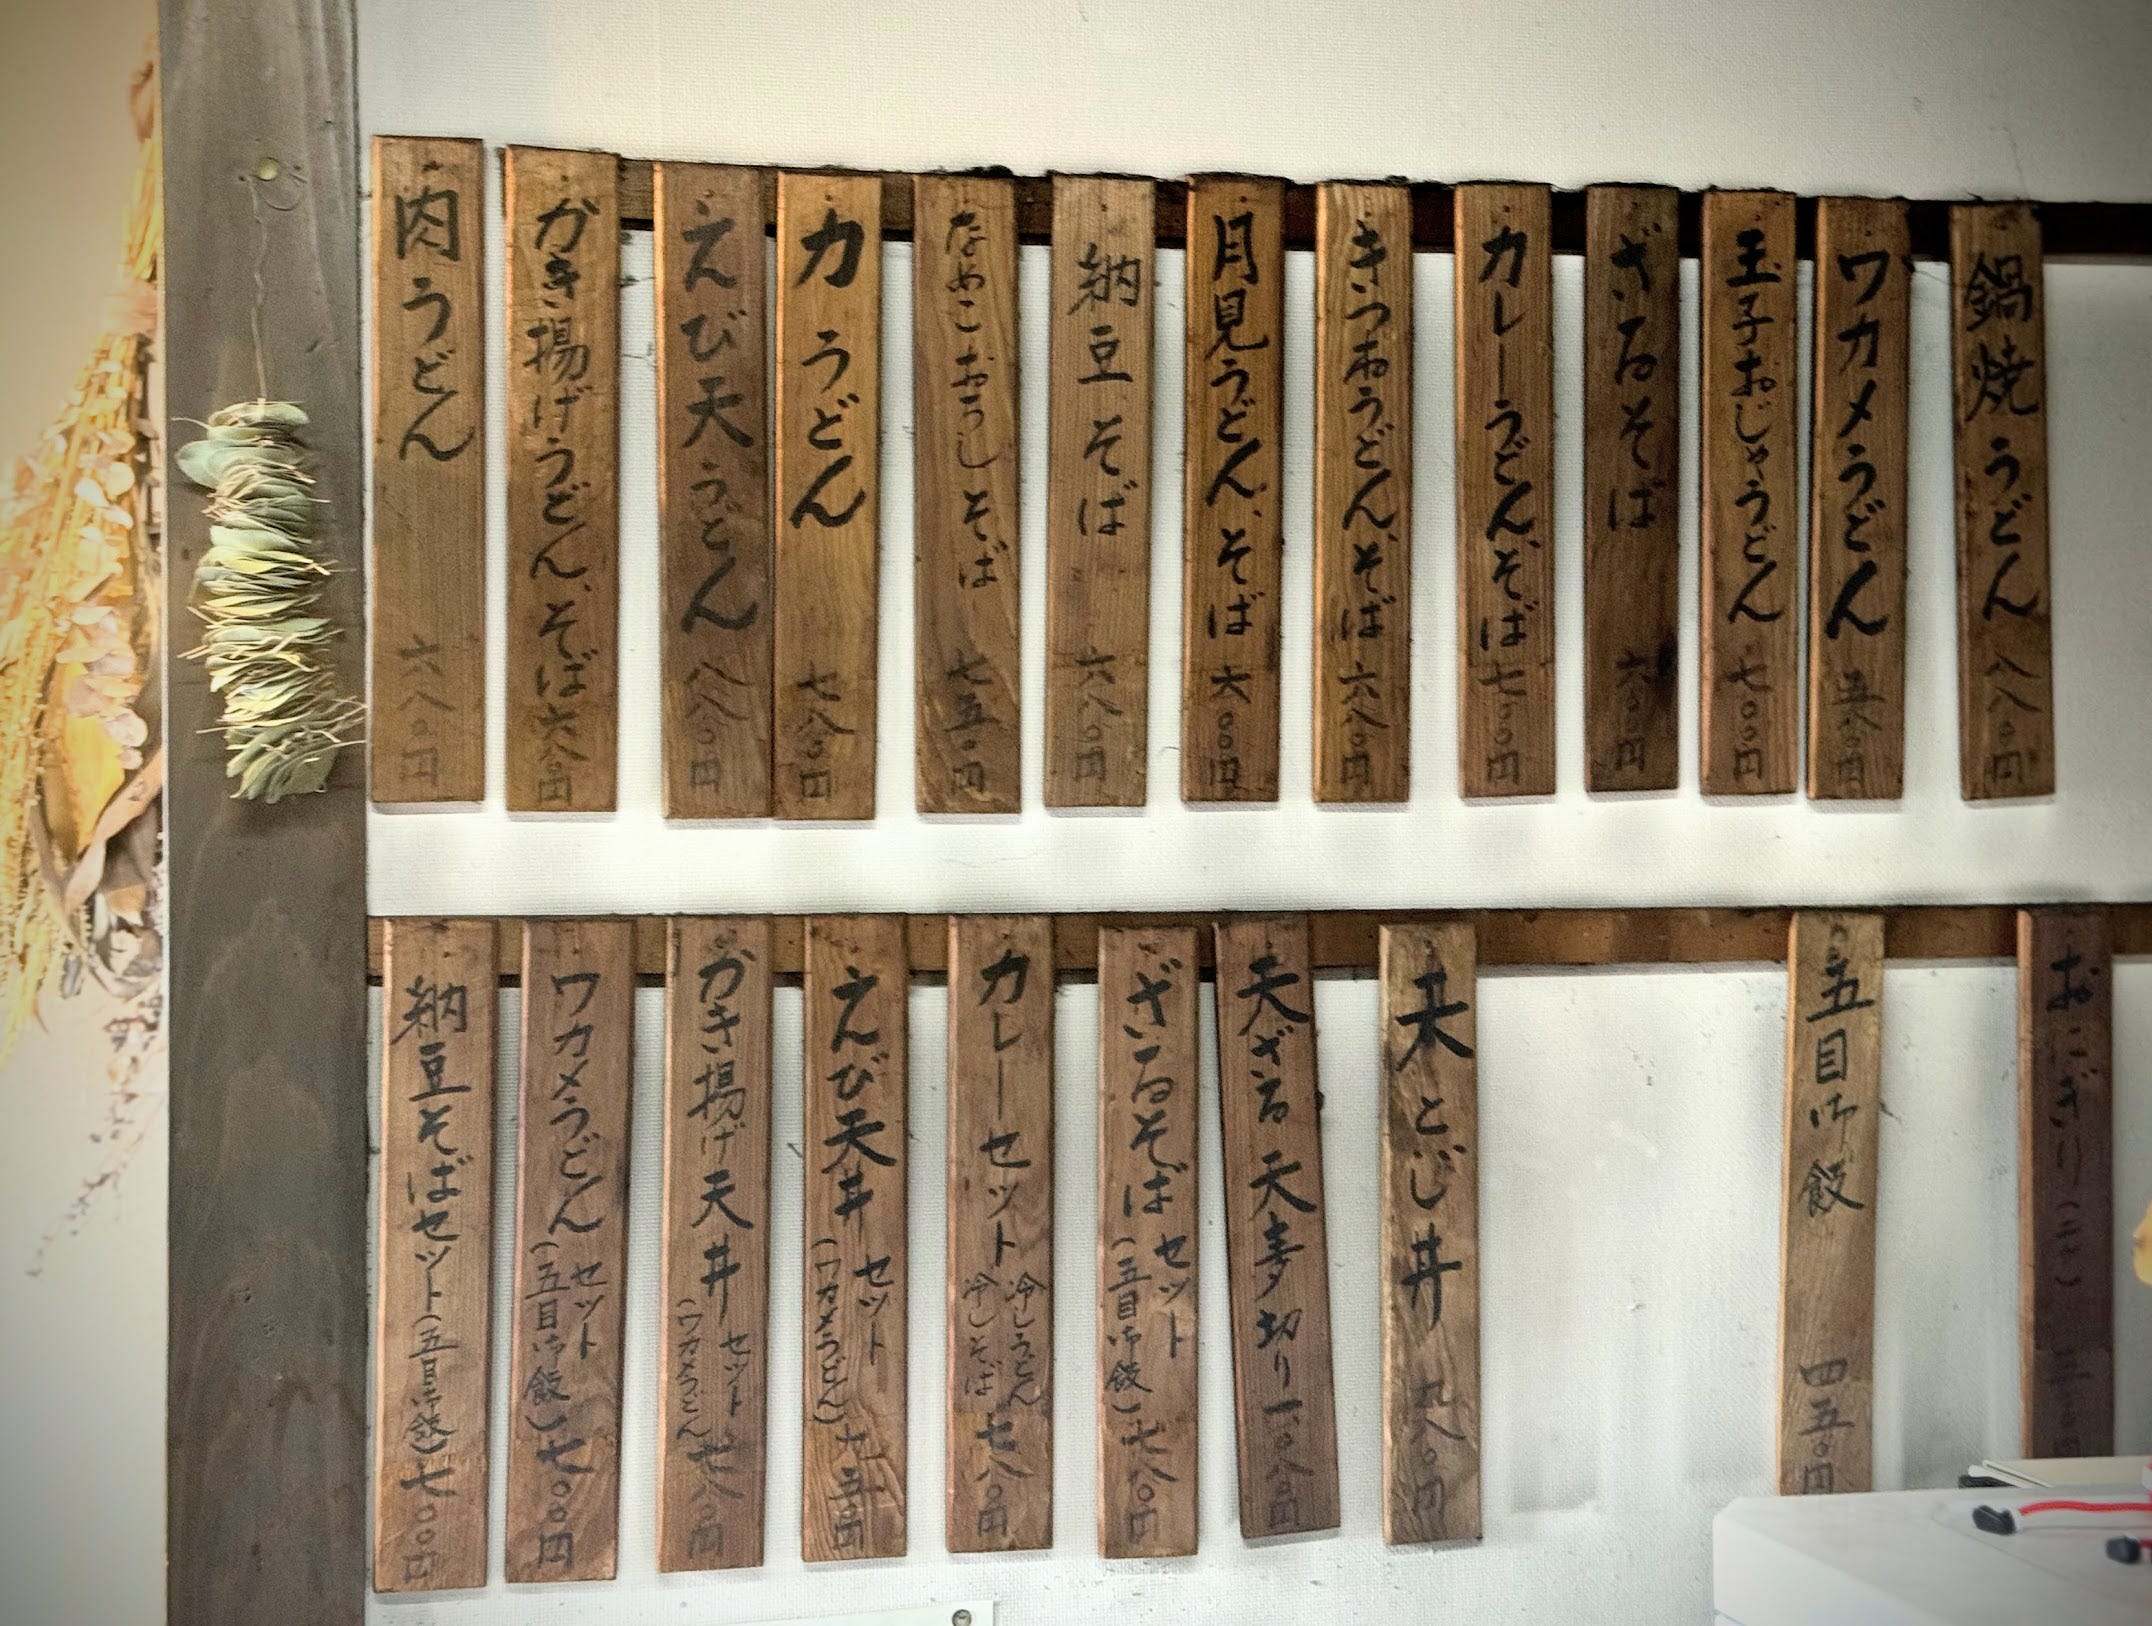 鍋焼うどん 八八〇円
ワカメうどん 五八〇円
玉子おじやうどん 七〇〇円
ざるそば 六〇〇円
カレーうどん、そば 七〇〇円
きつねうどん、そば 六八〇円
月見うどん、そば 六〇〇円
納豆そば 六八〇円
なめこおろしそば 七五〇円
力うどん 七八〇円
えび天うどん 八八〇円
かき揚げうどん、そば 六八〇円
肉うどん 六八〇円
おにぎり(二ヶ)
五目御飯 四五〇円
天とじ丼 九八〇円
天ざる 天寿切り 一、〇八〇円
ざるそばセット(五目御飯)七八〇円
カレーセット 冷しうどん 冷しそば 七八〇円
えび天丼セット(ワカメうどん)九五〇円
かき揚げ天丼セット(ワカメうどん 七八〇円
ワカメうどんセット(五目御飯)七〇〇円
納豆そばセット(五目御飯)七〇〇円